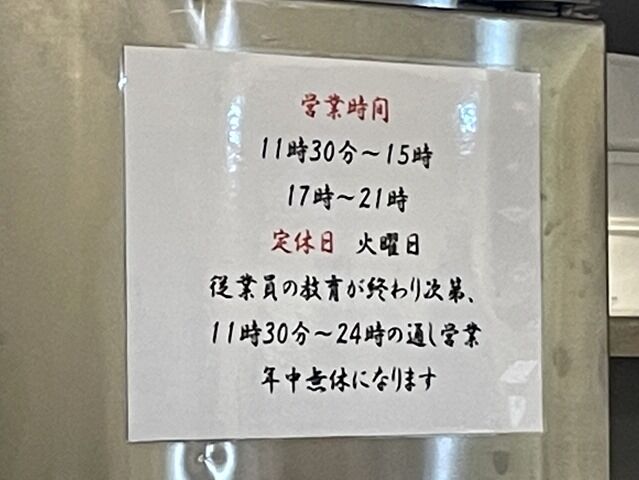 営業時間
11時30分～15時
17時～21時
定休日 火曜日
従業員の教育が終わり次第、
11時30分～24時の通し営業
年中無休になります